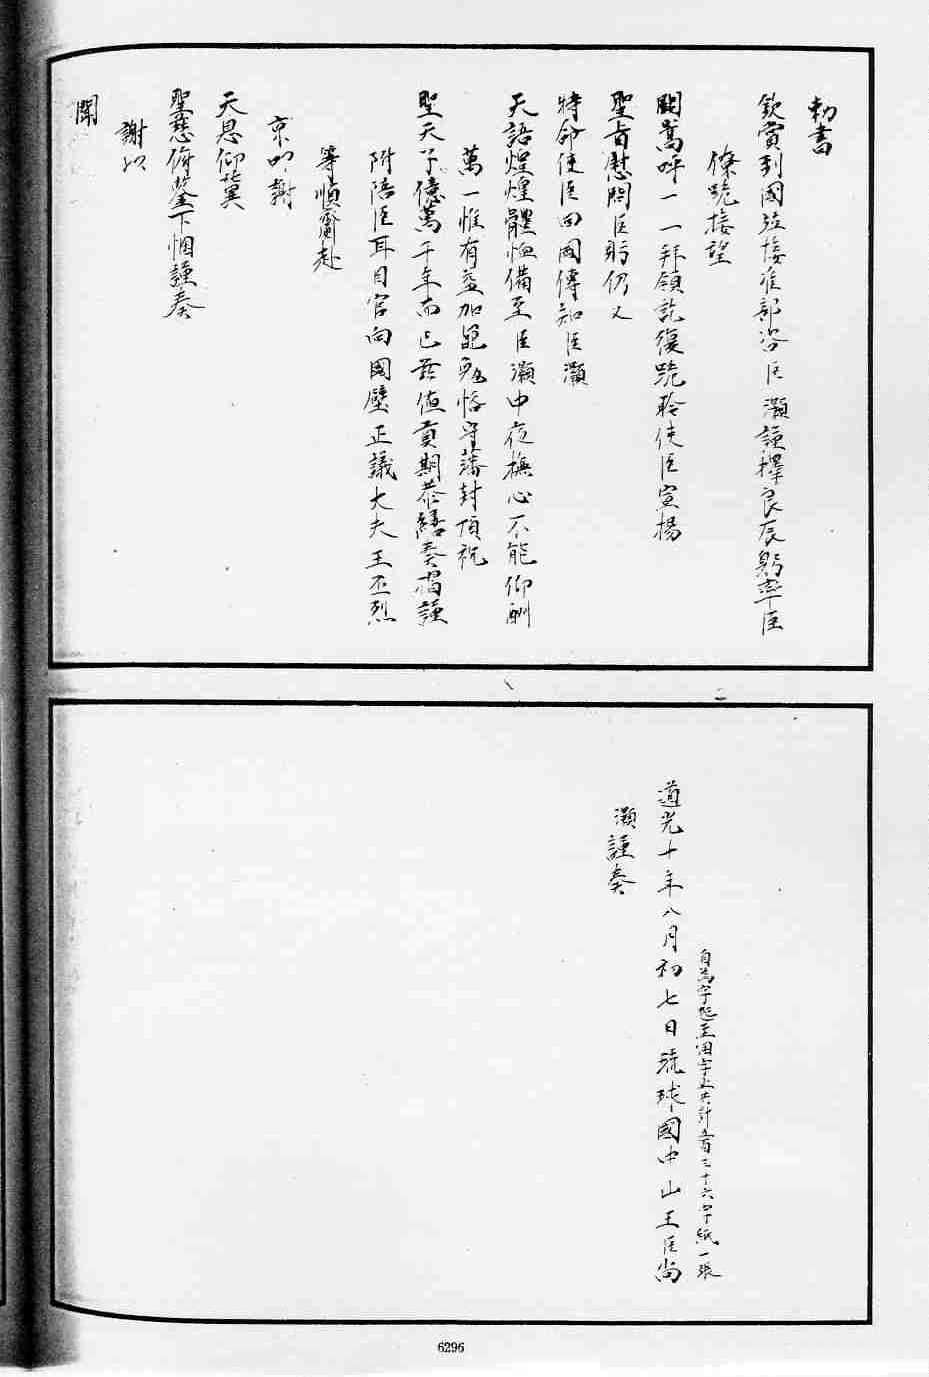 勅書
欽賞到國茲接准部咨臣灝謹擇良辰躬率臣
僚跪接望
闕嵩呼一一拜領訖復跪聆使臣宣揚
聖旨慰問臣躬仍又
特命使臣回國傳知臣灝
天語煌煌體恤備至臣灝中夜撫心不能仰酬
萬一惟有益加黽勉恪守藩封頂祝
聖天子億萬千年而已茲值貢期恭繕奏摺謹
附陪臣耳目官向國璧正議大夫王丕烈
等慎齎赴
京叩謝
天恩仰冀
聖慈俯鑒下悃謹奏
謝以
聞
自為字起至聞字止共計五百三十六字紙一張
道光十年八月初七日琉球國中山王臣尚
灝謹奏
6296